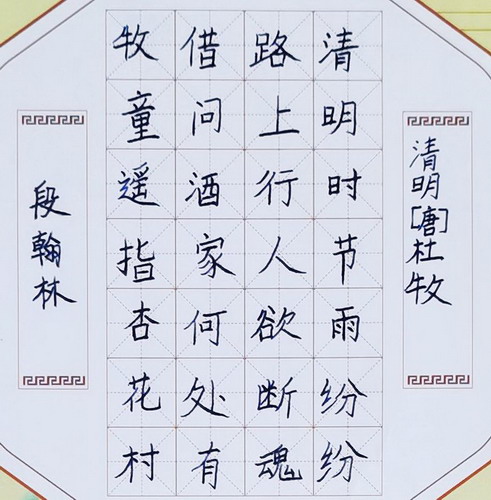 清明[唐]杜牧
清明时节雨纷纷
路上行人欲断魂
借问酒家何处有
牧童遥指杏花村
段翰林